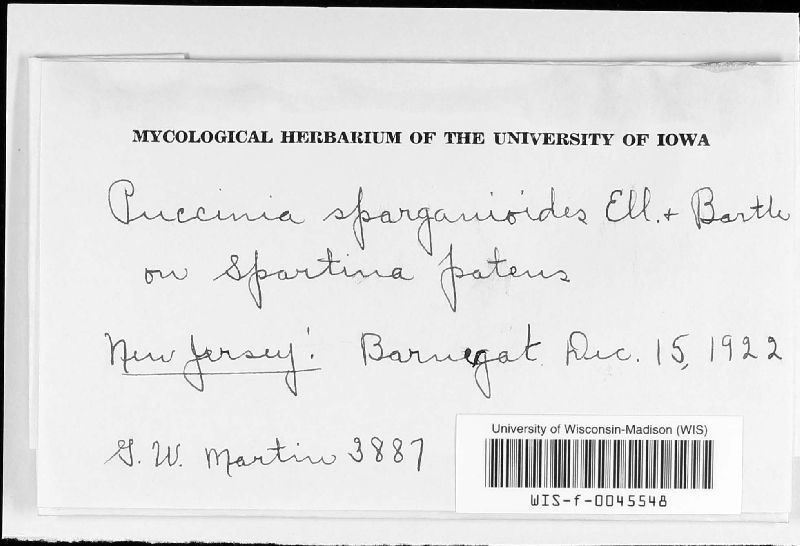 MYCOLOGICAL HERBARIUM OF THE UNIVERSITY OF IOWA
Puccinia sparganioides Ell. & Barth
on Spartina patens
New Jersey: Barnegat. Dec. 15, 1922
G. W. Martin 3887
University of Wisconsin-Madison (WIS)
WIS-f-0045548